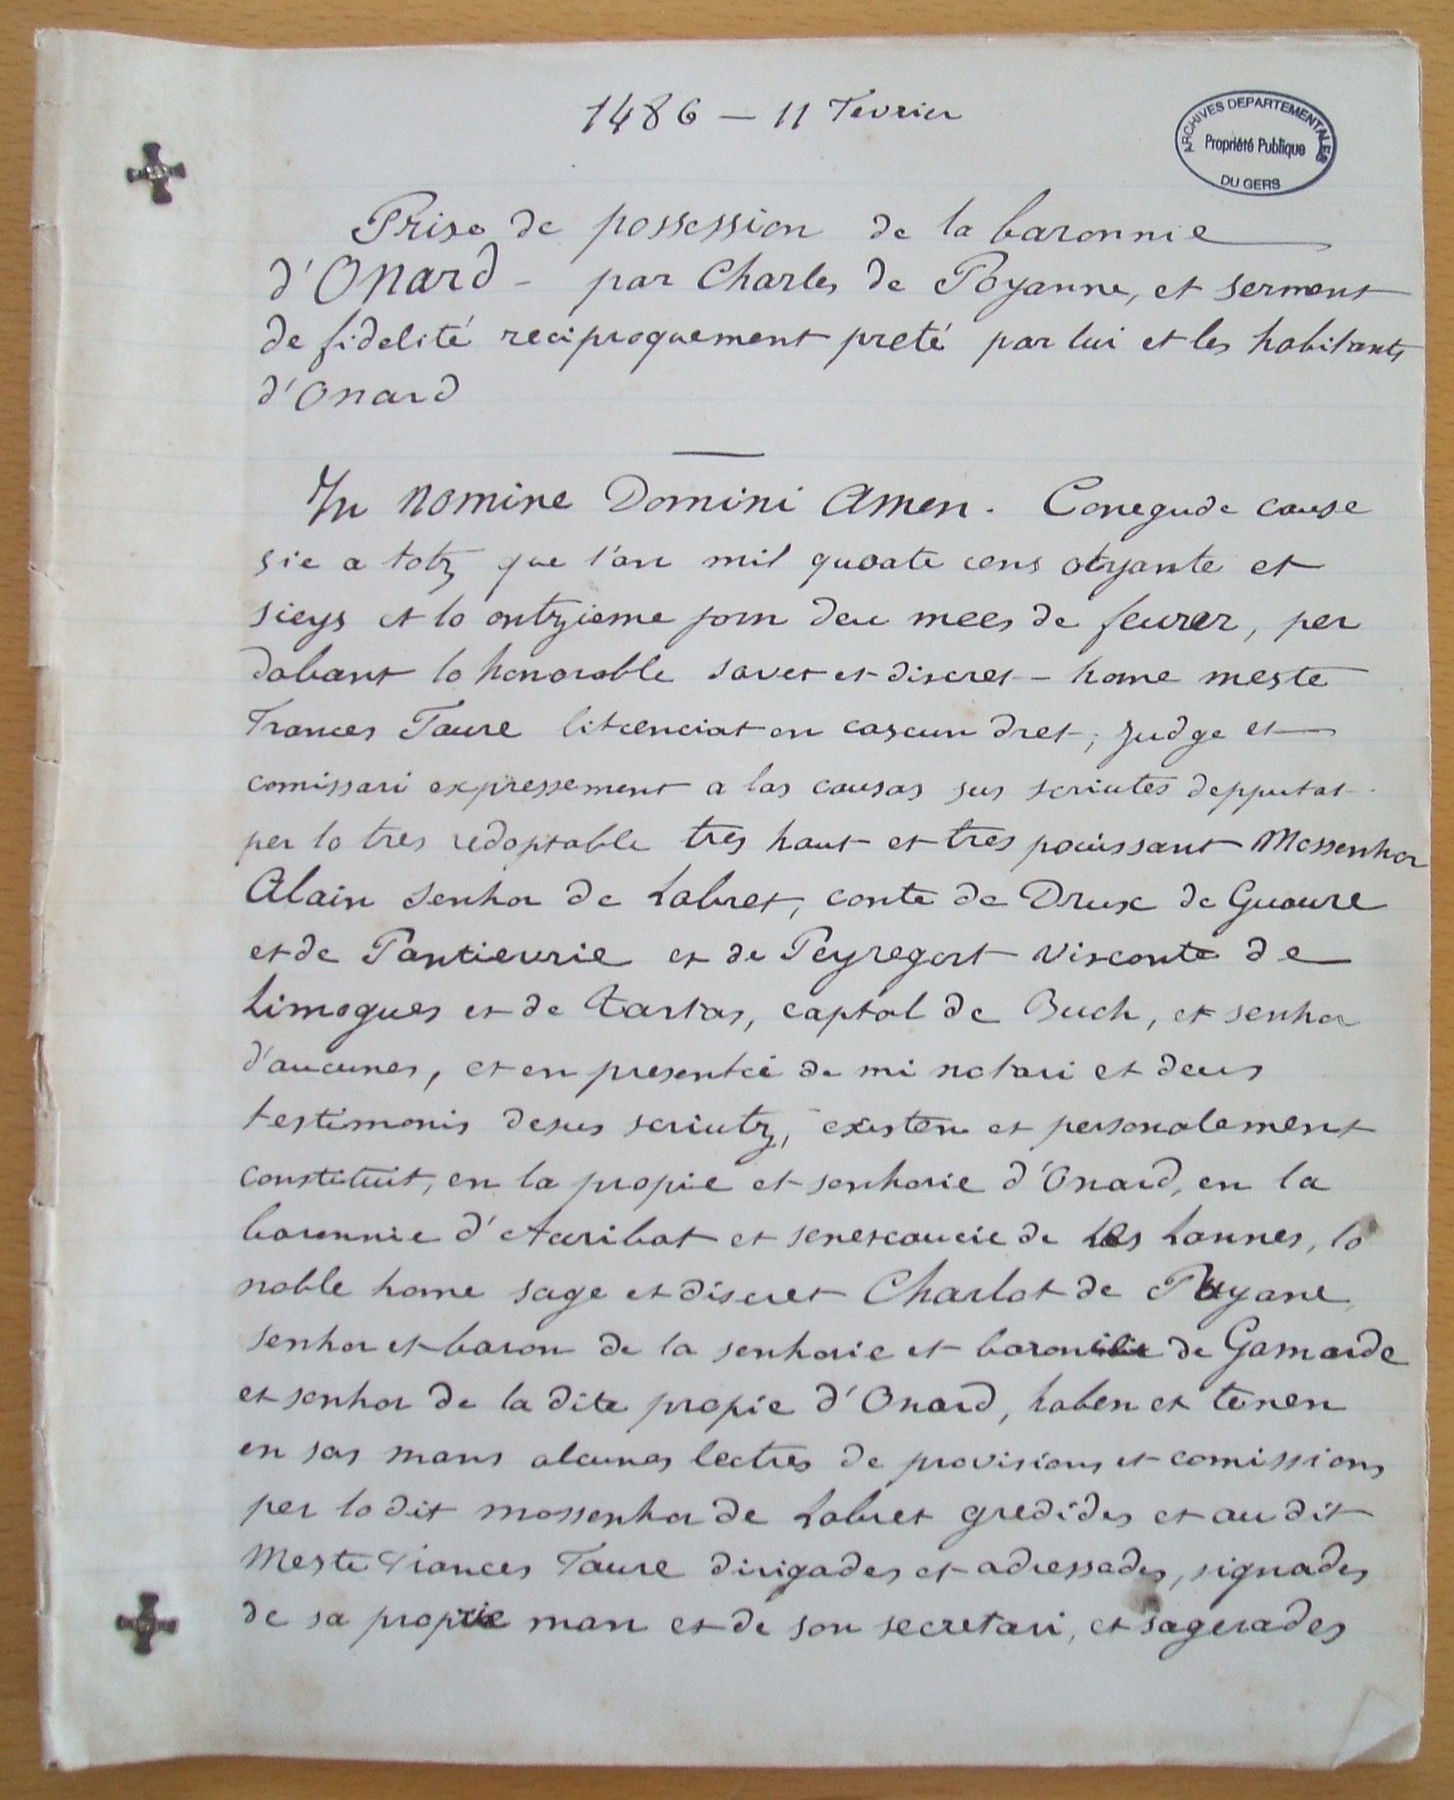 1486 — 11 Fevrier
ARCHIVES DEPARTEMENTALES
Propriété Publique
DU GERS
Prise de possession de la baronnie
d'Onard – par Charles de Poyanne, et serment
de fidelité reciproquement preté par lui et les habitants
d'Onard
In nomine Domini Amen. Conegude cause
sie a totz que l'an mil quoate cens oeyante et
sieys et lo ontzieme jorn deu mees de feurer, per
dabant lo honorable savet et discret – home meste
Frances Faure litcenciat en cascun dret, judge et
comissari expressement a las causas sus scriutes depputat
per lo tres redoptable tres haut et tres pouissant Mossenhor
Alain senhor de Labret, conte de Drux de Guaure
et de Pantieurie et de Peyregort visconte de
Limogues et de Tartas, captal de Buch, et senhor
d'aucunes, et en presentie de mi notari et deus
testimonis desus scriutz, existen et personalement
constituit, en la propie et senhorie d'Onard, en la
baronnie d'Auribat et senescaucie de Les Lannes, lo
noble home sage et discret Charlot de Puyane
senhor et baron de la senhorie et baronie de Gamarde
et senhor de la dite propie d'Onard, haben et tenen
en sas mans alcunas lectres de provisions et comissions
per lo dit mossenhor de Labret gredides et au dit
Meste Frances Faure dirigades et adressades, signades
de sa proprie man et de son secretari, et sagerades